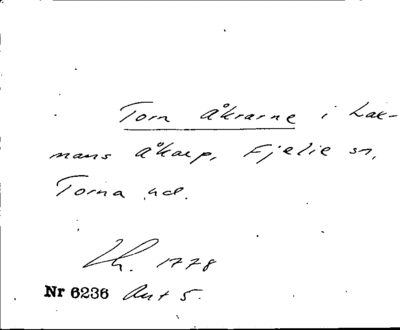 Torn Åkrarne i Lack-
mans Åkarp, Fjelie sn,
Torna hd.
Lk. 1778
Nr 6236 Akt 5.